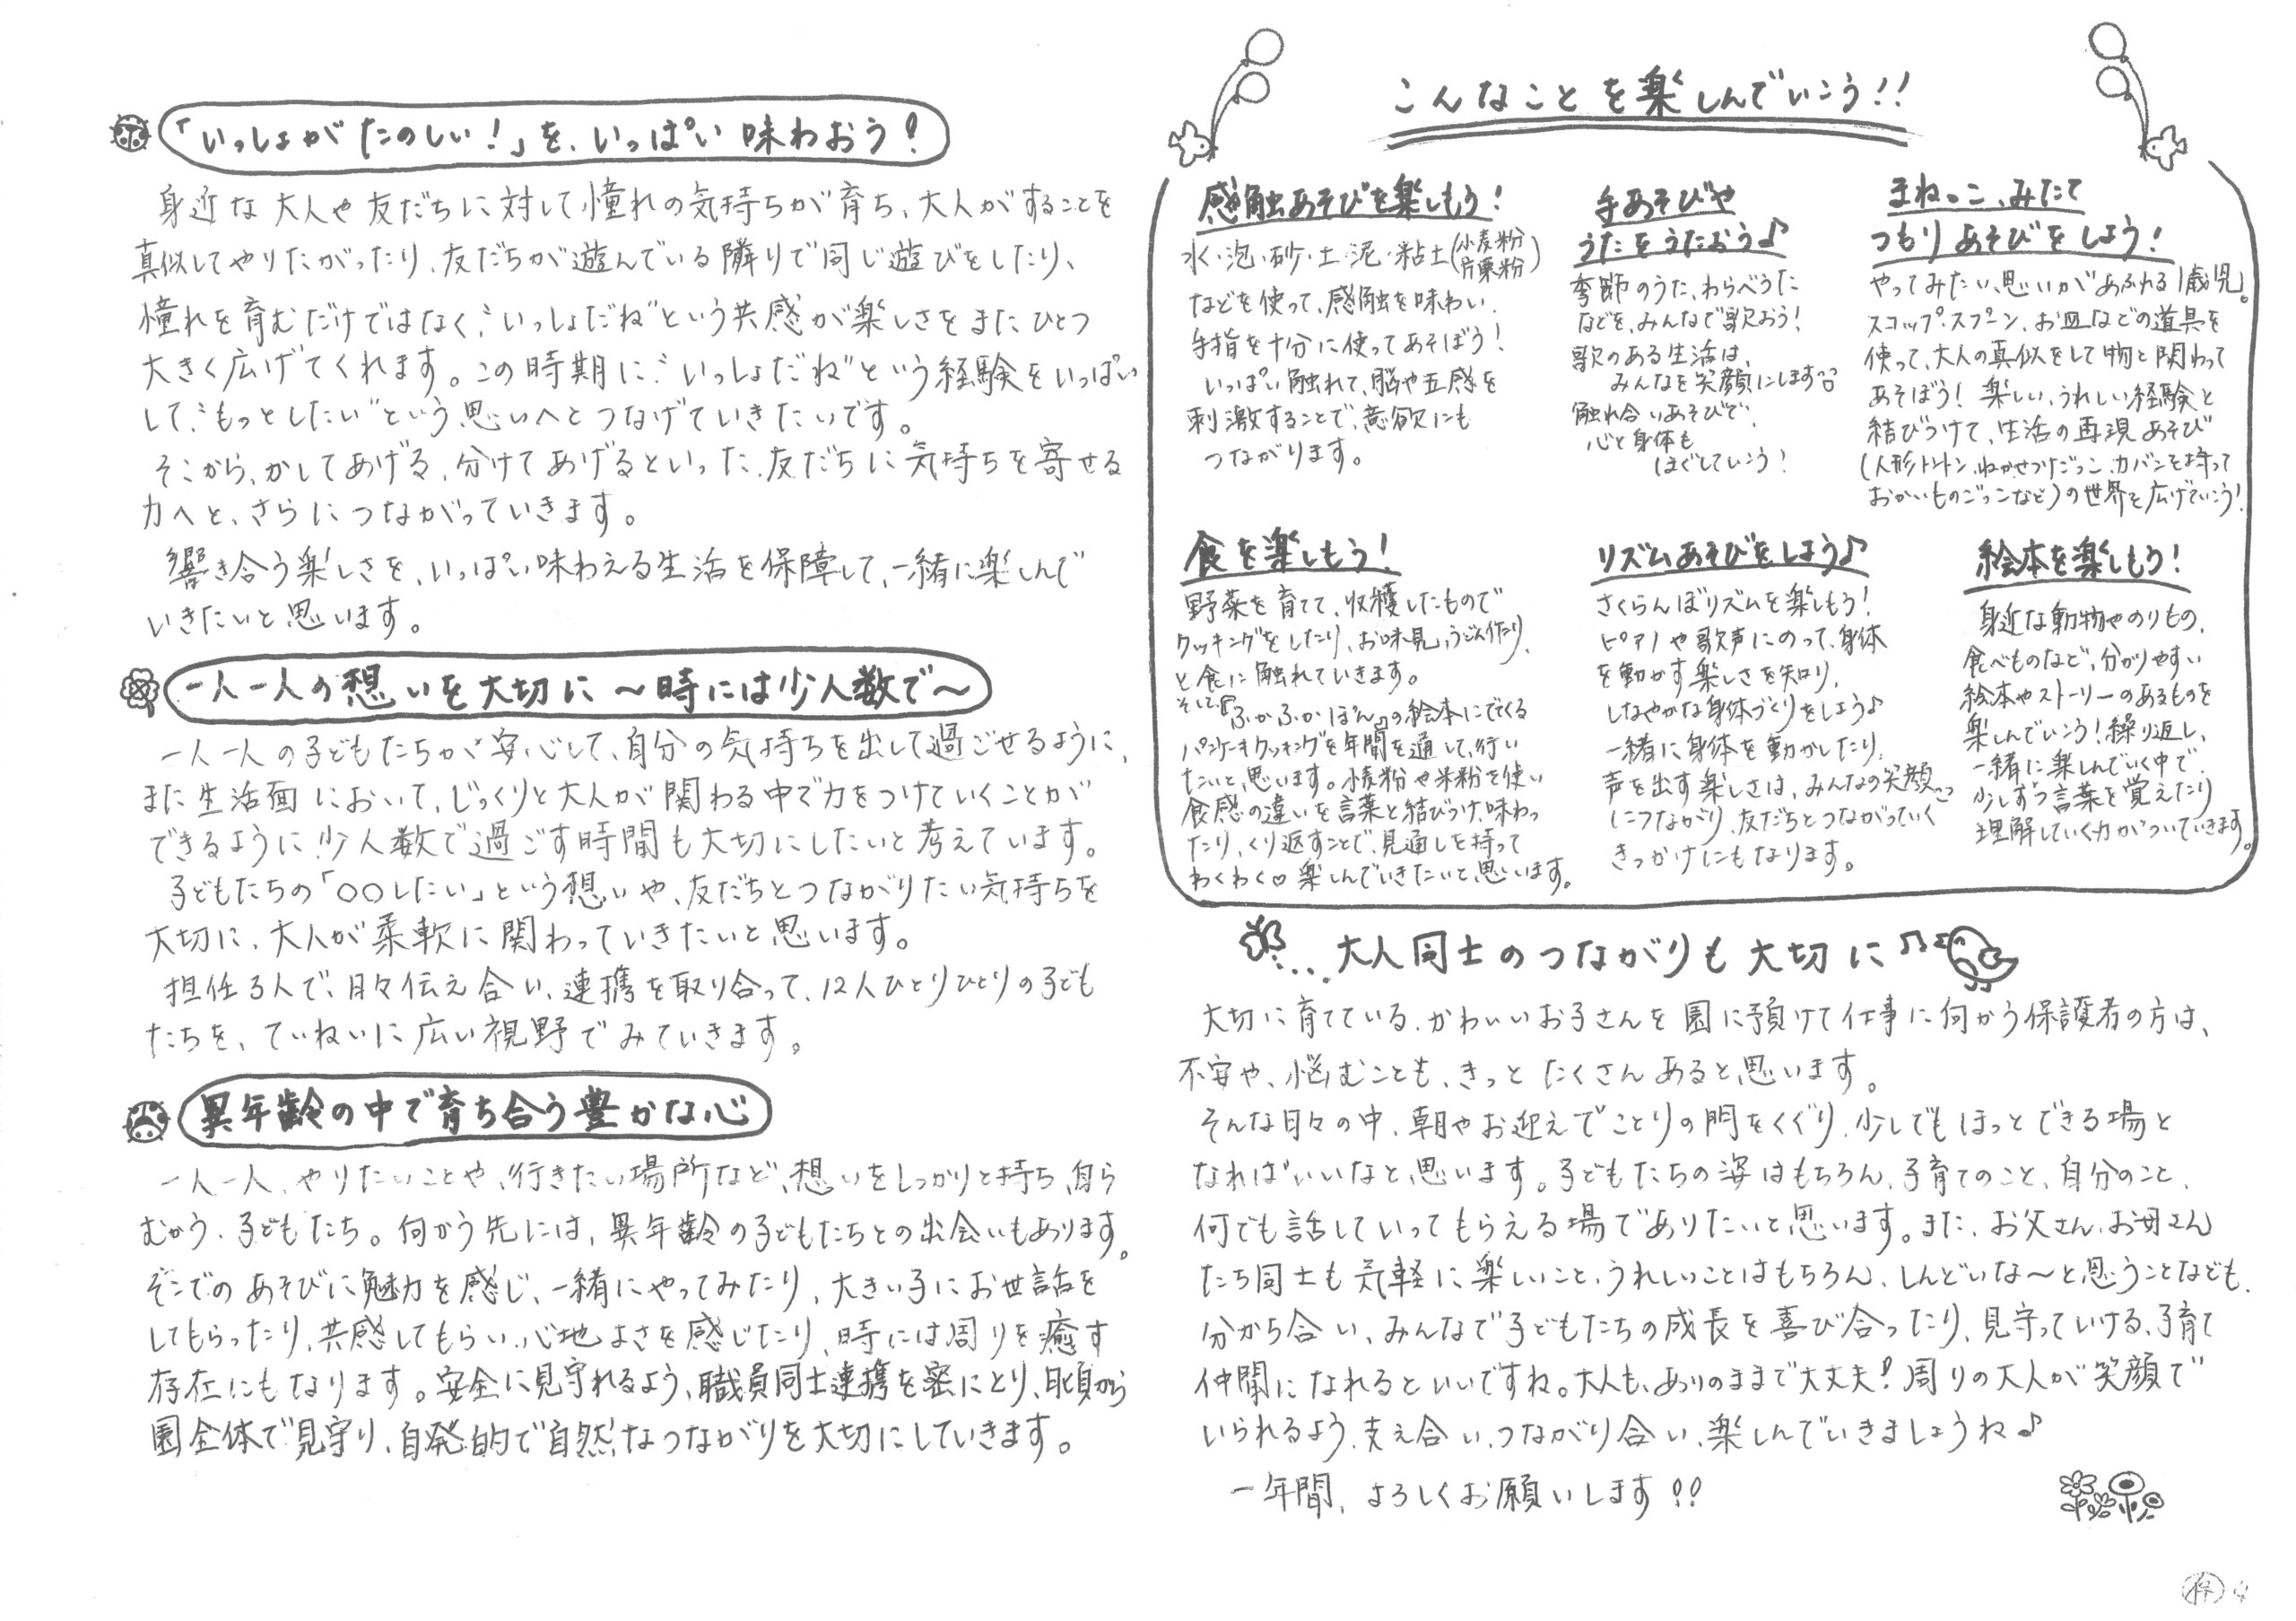 「いっしょがたのしい！」を、いっぱい味わおう！
身近な大人や友だちに対して憧れの気持ちが育ち、大人がすることを
真似してやりたがったり、友だちが遊んでいる隣りで同じ遊びをしたり、
憧れを育むだけではなく、"いっしょだね"という共感が楽しさをまたひとつ
大きく広げてくれます。この時期に、"いっしょだね"という経験をいっぱい
して、"もっとしたい"という思いへとつなげていきたいです。
そこから、かしてあげる、分けてあげるといった、友だちに気持ちを寄せる
力へと、さらにつながっていきます。
響き合う楽しさを、いっぱい味わえる生活を保障して、一緒に楽しんで
いきたいと思います。
一人一人の想いを大切に～時には少人数で～
一人一人の子どもたちが安心して、自分の気持ちを出して過ごせるように、
また生活面において、じっくりと大人が関わる中で力をつけていくことが
できるように少人数で過ごす時間も大切にしたいと考えています。
子どもたちの「○○したい」という想いや、友だちとつながりたい気持ちを
大切に、大人が柔軟に関わっていきたいと思います。
担任3人で、日々伝え合い、連携を取り合って、12人ひとりひとりの子ども
たちを、ていねいに広い視野でみていきます。
異年齢の中で育ち合う豊かな心
一人一人、やりたいことや、行きたい場所など、想いをしっかりと持ち、自ら
むかう、子どもたち。向かう先には、異年齢の子どもたちとの出会いもあります。
そこでのあそびに魅力を感じ、一緒にやってみたり、大きい子にお世話を
してもらったり、共感してもらい、心地よさを感じたり、時には周りを癒す
存在にもなります。安全に見守れるよう、職員同士連携を密にとり、日頃から
園全体で見守り、自発的で自然なつながりを大切にしていきます。
こんなことを楽しんでいこう!!
感触あそびを楽しもう！
水・泡・砂・土・泥・粘土(小麦粉 片栗粉)
などを使って、感触を味わい、
手指を十分に使ってあそぼう！
いっぱい触れて、脳や五感を
刺激することで、意欲にも
つながります。
手あそびや
うたをうたおう♪
季節のうた、わらべうた
などを、みんなで歌おう！
歌のある生活は、
みんなを笑顔にします
触れ合いあそびで、
心と身体も
ほぐしていこう！
まねっこ、みたて
つもりあそびをしよう！
やってみたい、思いがあふれる1歳児。
スコップ・スプーン、お皿などの道具を
使って、大人の真似をして物と関わって
あそぼう！楽しい、うれしい経験と
結びつけて、生活の再現あそび
(人形トントン、ねかせつけごっこ、カバンを持って
おかいものごっこなど)の世界を広げていこう！
食を楽しもう！
野菜を育てて、収穫したもので
クッキングをしたり、お味見、うどん作り、
と食に触れていきます。
そして『ふかふかぽん』の絵本にでてくる
パンケーキクッキングを年間を通して、行い
たいと思います。小麦粉や米粉を使い
食感の違いを言葉と結びつけ、味わっ
たり、くり返すことで、見通しを持って
わくわく♡楽しんでいきたいと思います。
リズムあそびをしよう♪
さくらんぼリズムを楽しもう！
ピアノや歌声にのって、身体
を動かす楽しさを知り、
しなやかな身体づくりをしよう♪
一緒に身体を動かしたり、
声を出す楽しさは、みんなの笑顔
につながり、友だちとつながっていく
きっかけにもなります。
絵本を楽しもう！
身近な動物やのりもの、
食べものなど、分かりやすい
絵本やストーリーのあるものを
楽しんでいこう！繰り返し、
一緒に楽しんでいく中で、
少しずつ言葉を覚えたり
理解していく力がついていきます。
大人同士のつながりも大切に♪
大切に育てている、かわいいお子さんを園に預けて仕事に向かう保護者の方は、
不安や、悩むことも、きっとたくさんあると思います。
そんな日々の中、朝やお迎えでことりの門をくぐり、少しでもほっとできる場と
なればいいなと思います。子どもたちの姿はもちろん、子育てのこと、自分のこと、
何でも話していってもらえる場でありたいと思います。また、お父さん、お母さん
たち同士も気軽に楽しいこと、うれしいことはもちろん、しんどいな～と思うことなども、
分かち合い、みんなで子どもたちの成長を喜び合ったり、見守っていける、子育て
仲間になれるといいですね。大人も、ありのままで大丈夫！周りの大人が笑顔で
いられるよう、支え合い、つながり合い、楽しんでいきましょうね♪
一年間、よろしくお願いします!!